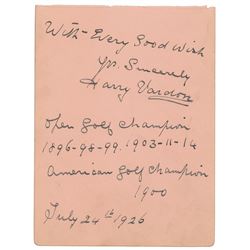 With Every Good Wish
Yrs Sincerely
Harry Vardon
Open Golf Champion
1896-98-99. 1903-11-14
American Golf Champion
1900
July 24th 1926